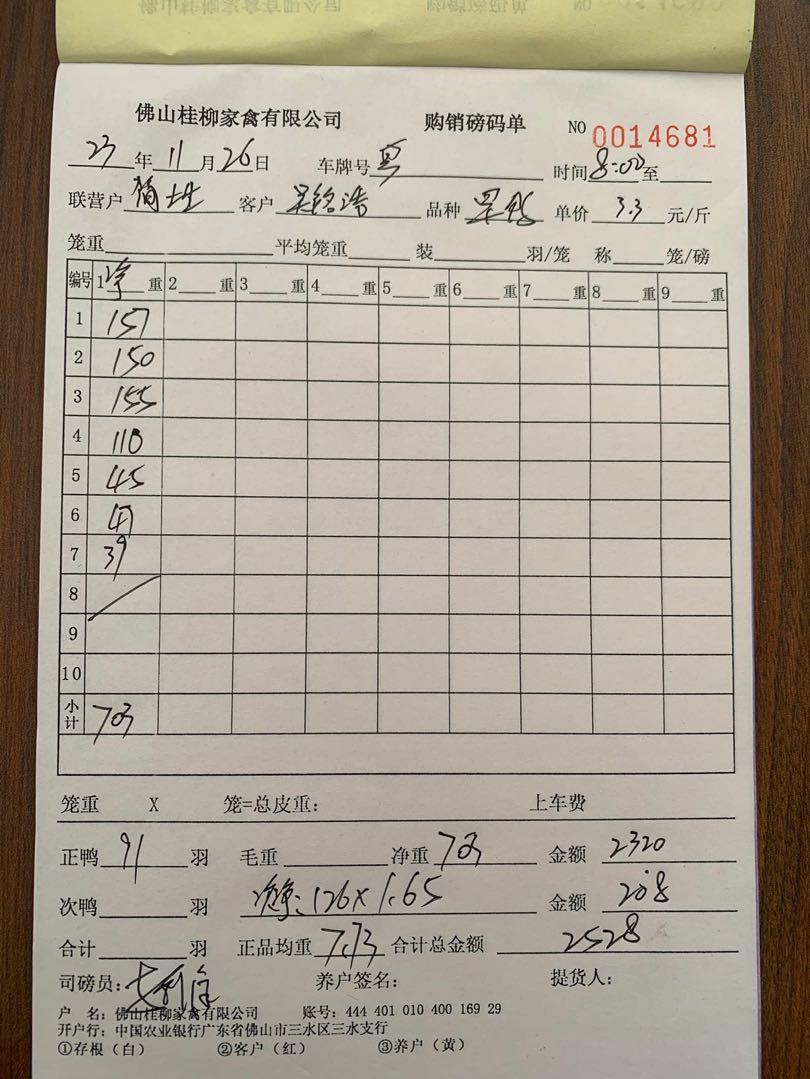 佛山桂柳家禽有限公司 购销磅码单 NO 0014681
23年11月26日 车牌号 时间8:00至
联营户 客户 吴铭浩 品种 单价3.3元/斤
笼重 平均笼重 装 羽/笼 称 笼/磅
编号 1净重 2 重 3 重 4 重 5 重 6 重 7 重 8 重 9 重
1 157
2 150
3 155
4 110
5 45
6 47
7 39
8
9
10
小计 703
笼重 X 笼=总皮重: 上车费
正鸭91羽 毛重 净重703 金额2320
次鸭 羽 净:126×1.65 金额208
合计 羽 正品均重7.73 合计总金额2528
司磅员: 养户签名: 提货人:
户 名: 佛山桂柳家禽有限公司 账号: 444 401 010 400 169 29
开户行: 中国农业银行广东省佛山市三水区三水支行
①存根(白) ②客户(红) ③养户(黄)